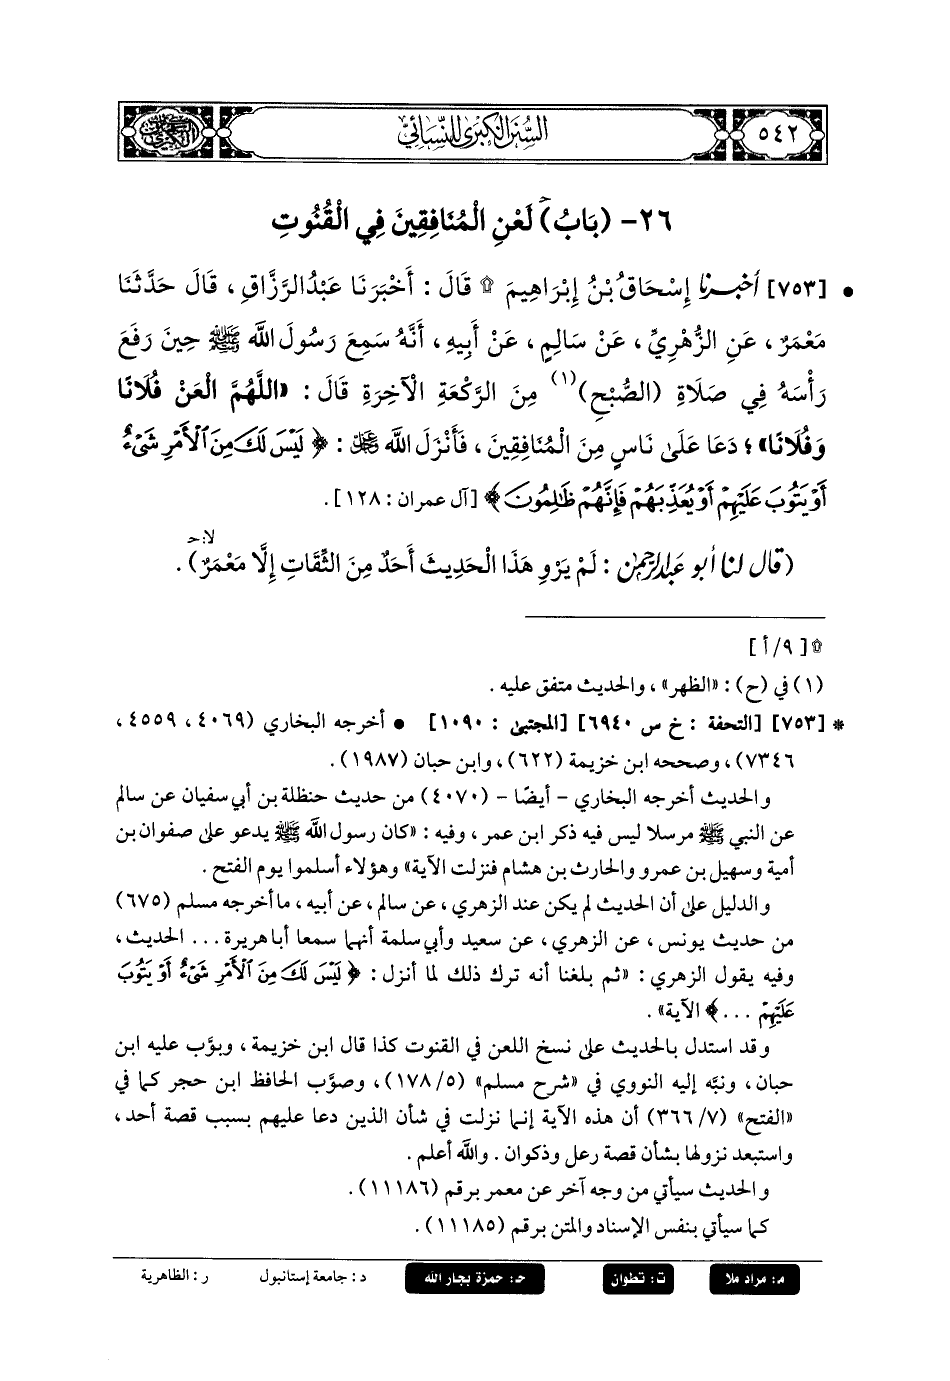 ٥٤٢
السُّنَنُ الكِبْرَى لِلنَّسَائِيِّ
٢٦- (بَابُ) لَعْنِ الْمُنَافِقِينَ فِي الْقُنُوتِ
• [٧٥٣] أَخْبَرَنَا إِسْحَاقُ بْنُ إِبْرَاهِيمَ ۩ قَالَ : أَخْبَرَنَا عَبْدُ الرَّزَّاقِ ، قَالَ حَدَّثَنَا
مَعْمَرٌ ، عَنِ الزُّهْرِيِّ ، عَنْ سَالِمٍ ، عَنْ أَبِيهِ ، أَنَّهُ سَمِعَ رَسُولَ اللَّهِ ﷺ حِينَ رَفَعَ
رَأْسَهُ فِي صَلَاةِ (الصُّبْحِ)(١) مِنَ الرَّكْعَةِ الْآخِرَةِ قَالَ : «اللَّهُمَّ الْعَنْ فُلَانًا
وَفُلَانًا» ؛ دَعَا عَلَى نَاسٍ مِنَ الْمُنَافِقِينَ ، فَأَنْزَلَ اللَّهُ ﷻ : ﴿ لَيْسَ لَكَ مِنَ ٱلْأَمْرِ شَىْءٌ
أَوْ يَتُوبَ عَلَيْهِمْ أَوْ يُعَذِّبَهُمْ فَإِنَّهُمْ ظَالِمُونَ ﴾ [آل عمران : ١٢٨] .
لا: حـ
(قَالَ لَنَا أَبُو عَبْدِ الرَّحْمَنِ : لَمْ يَرْوِ هَذَا الْحَدِيثَ أَحَدٌ مِنَ الثِّقَاتِ إِلَّا مَعْمَرٌ) .
۩ [ ٩/ أ ]
(١) في (ح) : «الظهر» ، والحديث متفق عليه .
* [٧٥٣] [التحفة : خ س ٦٩٤٠] [المجتبى : ١٠٩٠] • أخرجه البخاري (٤٠٦٩ ، ٤٥٥٩ ،
٧٣٤٦) ، وصححه ابن خزيمة (٦٢٢) ، وابن حبان (١٩٨٧) .
والحديث أخرجه البخاري - أيضًا - (٤٠٧٠) من حديث حنظلة بن أبي سفيان عن سالم
عن النبي ﷺ مرسلا ليس فيه ذكر ابن عمر ، وفيه : «كان رسول الله ﷺ يدعو على صفوان بن
أمية وسهيل بن عمرو والحارث بن هشام فنزلت الآية» وهؤلاء أسلموا يوم الفتح .
والدليل على أن الحديث لم يكن عند الزهري ، عن سالم ، عن أبيه ، ما أخرجه مسلم (٦٧٥)
من حديث يونس ، عن الزهري ، عن سعيد وأبي سلمة أنهما سمعا أبا هريرة . . . الحديث ،
وفيه يقول الزهري : «ثم بلغنا أنه ترك ذلك لما أنزل : ﴿ لَيْسَ لَكَ مِنَ ٱلْأَمْرِ شَىْءٌ أَوْ يَتُوبَ
عَلَيْهِمْ . . . ﴾ الآية» .
وقد استدل بالحديث على نسخ اللعن في القنوت كذا قال ابن خزيمة ، وبوَّب عليه ابن
حبان ، ونبَّه إليه النووي في «شرح مسلم» (٥/ ١٧٨) ، وصوَّب الحافظ ابن حجر كما في
«الفتح» (٧/ ٣٦٦) أن هذه الآية إنما نزلت في شأن الذين دعا عليهم بسبب قصة أحد ،
واستبعد نزولها بشأن قصة رعل وذكوان . والله أعلم .
والحديث سيأتي من وجه آخر عن معمر برقم (١١١٨٦) .
كما سيأتي بنفس الإسناد والمتن برقم (١١١٨٥) .
م: مراد ملا ت: تطوان حـ: حمزة بجار الله د: جامعة إستانبول ر: الظاهرية